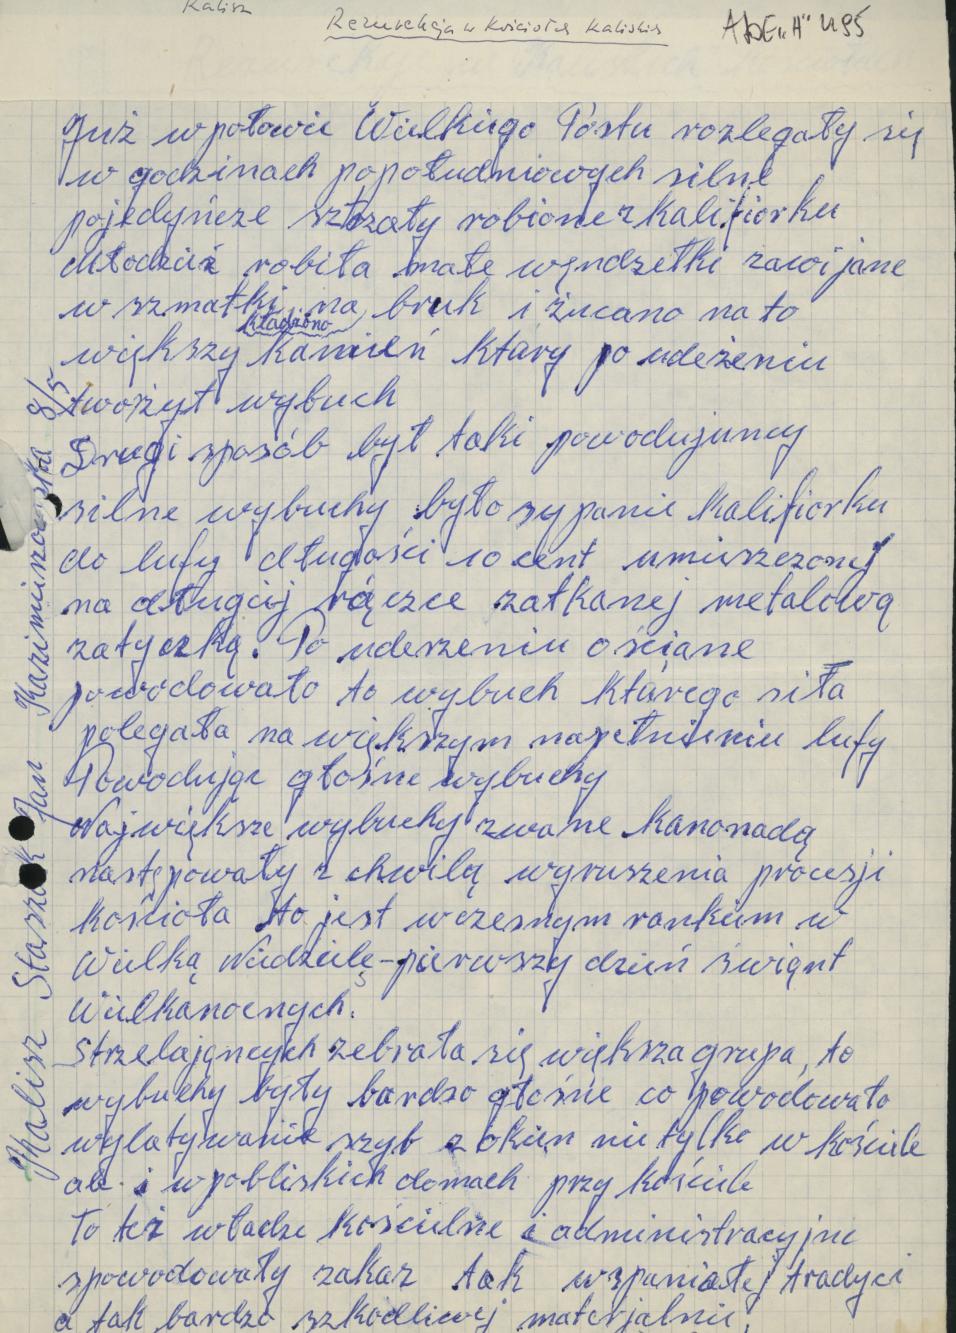 Kalisz
Rezurekcja w Kościołach Kaliskich
ADE "A" 495
Już w połowie Wielkiego Postu rozlegały się
w godzinach popołudniowych silne
pojedyńcze strzały robione z kalifiorku
Młodzież robiła małe węndzełki zawijane
w szmatki na bruk i żucano na to
kładziono
większy kamień który po udeżeniu
twożył wybuch
Drugi sposób był taki powodujuncy
silne wybuchy było sypanie kalifiorku
do lufy długości 10 cent umieszczonej
na długiej rączce zatkanej metalową
zatyczką. Po uderzeniu ościane
powodowało to wybuch którego siła
polegała na większym napełnieniu lufy
Powodując głośne wybuchy
Największe wybuchy zwane kanonadą
następowały z chwilą wyruszenia procesji
Kościoła to jest wczesnym rankiem w
Wielką Niedzielę - pierwszy dzień świąnt
Wielkanocnych.
Strzelającycych zebrała się większa grupa, to
wybuchy były bardzo głośne co powodowało
wylatywanie szyb z okien nie tylko w kościele
ale i w pobliskich domach przy kościele
To też władze Kościelne i administracyjne
spowodowały zakaz tak wspaniałej tradyci
a tak bardzo szkodliwej materjalnie.
Kalisz Staszak Jan Kazimierzowska 8/5